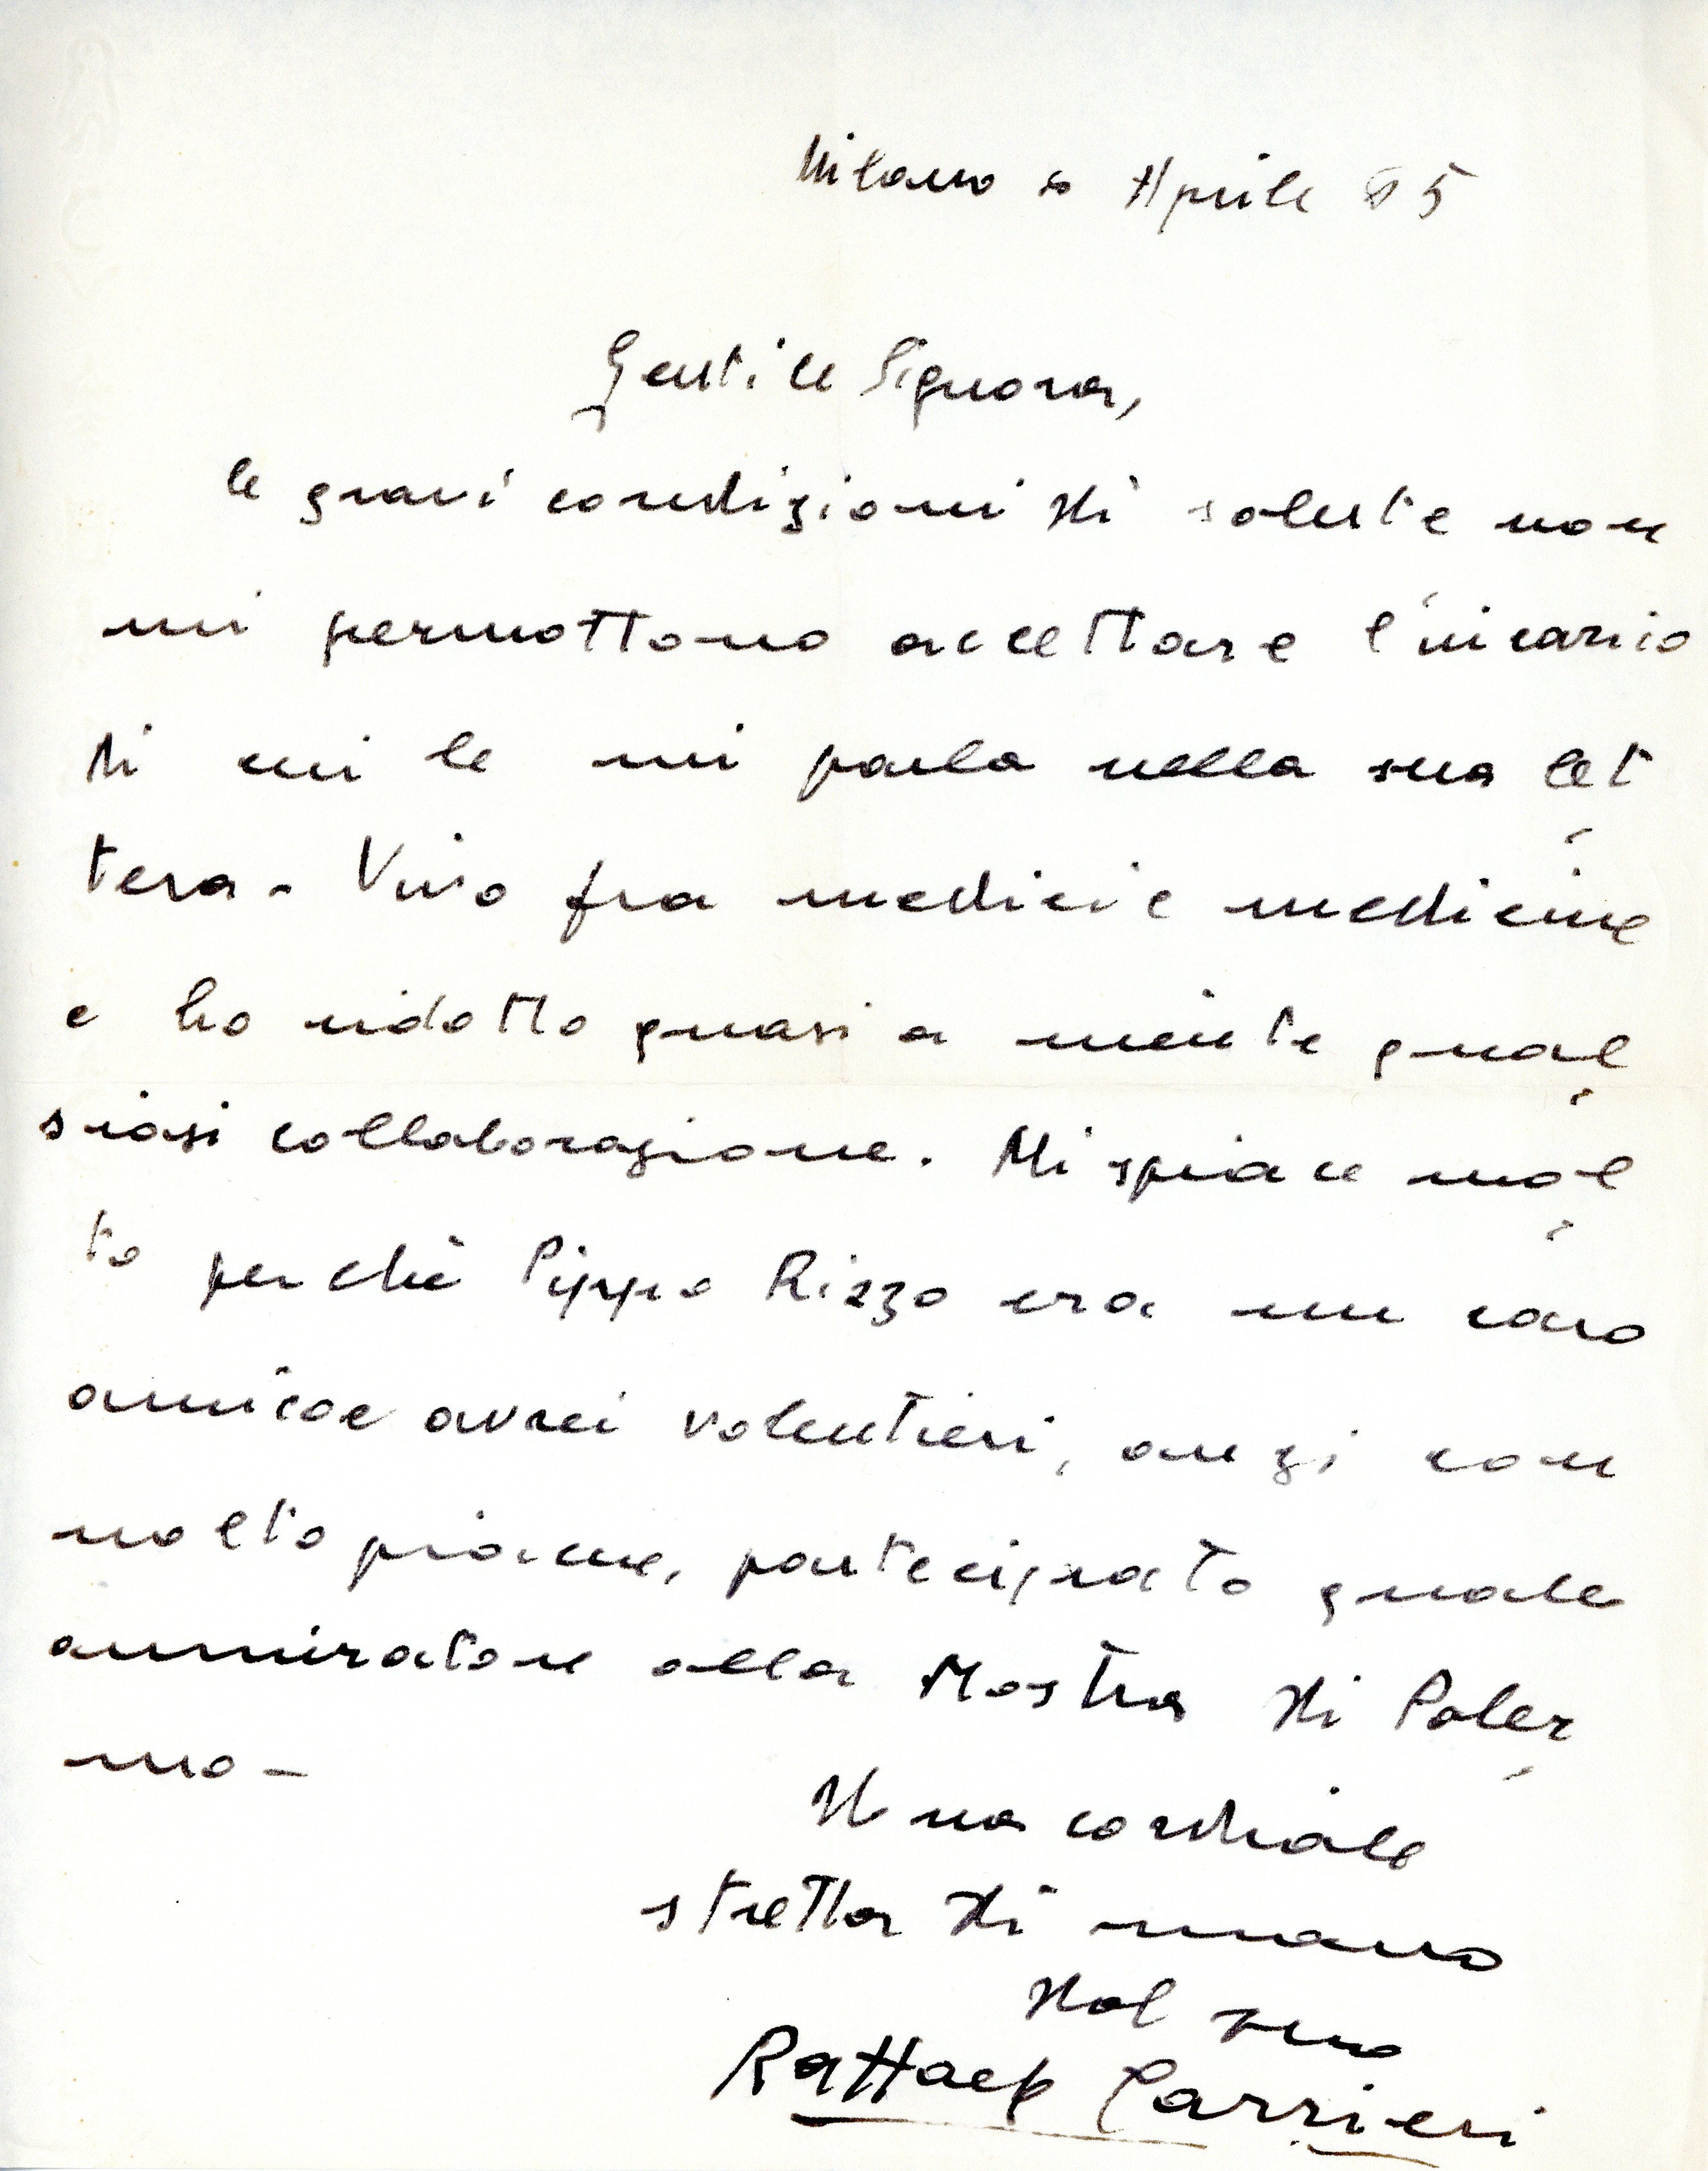 Milano Aprile
Gentile Signora,
le gravi condizioni di salute non
mi permettono accettare l'incarico
di cui le mi parla nella sua let
tera - Vivo fra medici e medicine
e ho ridotto quasi a niente qual
siasi collaborazione. Mi spiace mol
to perché Pippo Rizzo era un caro
amico e avrei volentieri, anzi con
molto piacere, partecipato quale
ammiratore alla Mostra di Paler
mo -
Una cordiale
stretta di mano
dal suo
Raffaele Carrieri